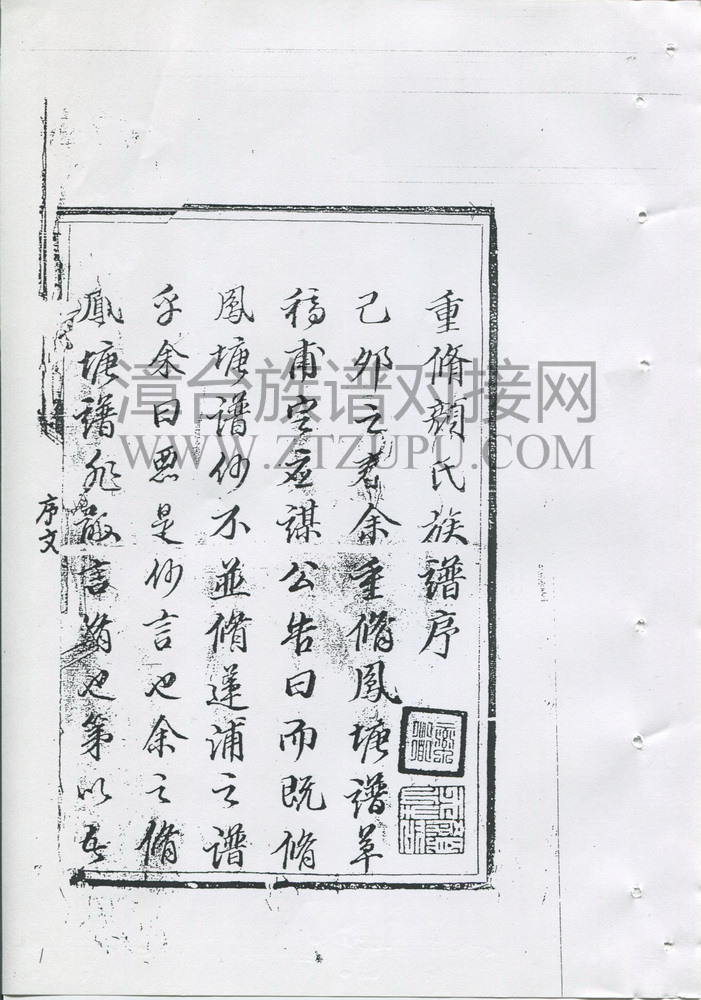 重脩顔氏族譜序
己卯之春余重脩鳳塘譜草
稿甫定應謀公告曰而既脩
鳳塘譜何不並脩蓮浦之譜
乎余曰惡是何言也余之脩
鳳塘譜非敢言脩也第以吾
序文
1
漳台族谱对接网
WWW.ZTZUPU.COM